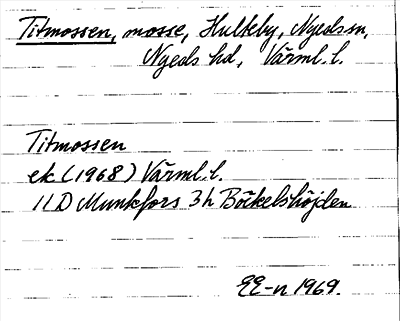 Titmossen, mosse, Hulteby, Nyeds sn,
Nyeds hd, Värml. l.
Titmossen
ek (1968) Värml. l.
11D Munkfors 3h Böckelshöjden
EE-n 1969.